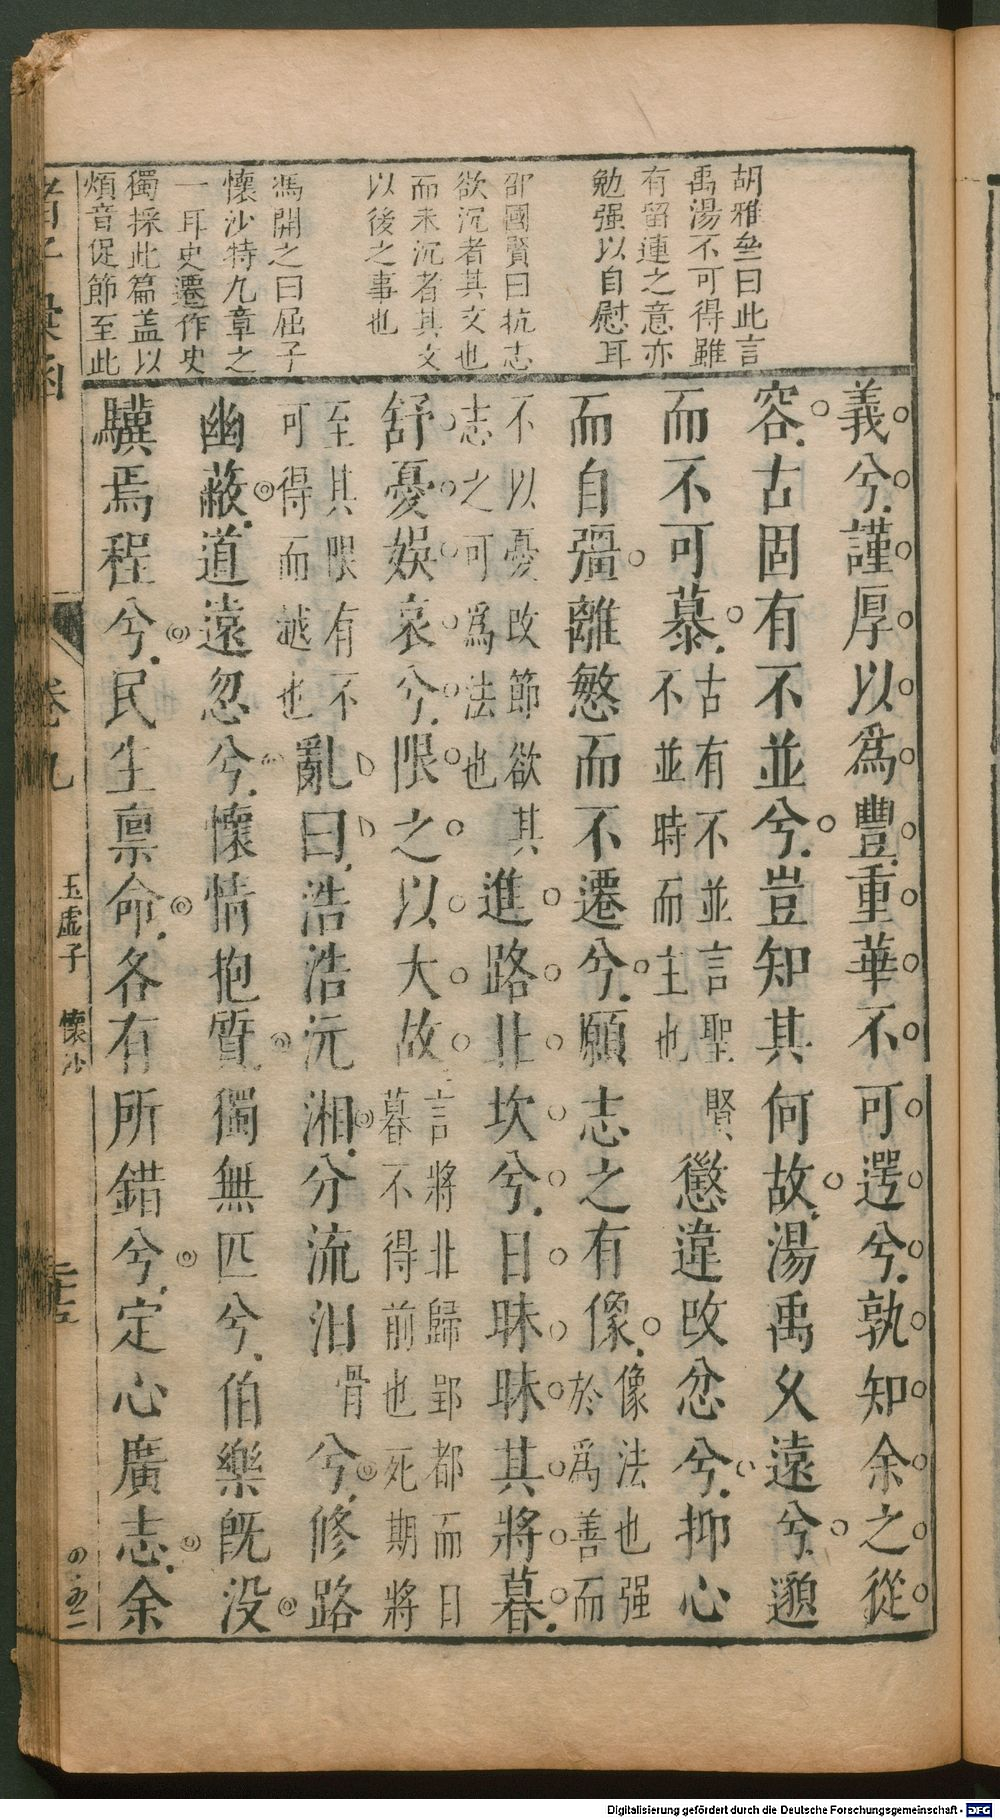 胡雅𡊮曰此言
禹湯不可得雖
有留連之意亦
勉强以自慰耳
邵國賢曰抗志
欲沉者其文也
而未沉者其文
以後之事也
馮開之曰屈子
懷沙特九章之
一耳史遷作史
獨採此篇盖以
煩音促節至此
義兮謹厚以爲豐重華不可遌兮孰知余之從
容古固有不並兮豈知其何故湯禹久遠兮邈
而不可慕古有不並言聖賢不並時而主也懲違改忿兮抑心
而自彊離慜而不遷兮願志之有像像法也强於爲善而
不以憂改節欲其志之可爲法也進路北坎兮日昧昧其將暮
舒憂娛哀兮限之以大故言將北歸郢都而日暮不得前也死期將
至其限有不可得而越也亂曰浩浩沅湘分流汨骨兮修路
幽蔽道遠忽兮懷情抱質獨無匹兮伯樂旣没
驥焉程兮民生禀命各有所錯兮定心廣志余
卷九
玉虛子
懷沙
二十五
Digitalisierung gefördert durch die Deutsche Forschungsgemeinschaft - DFG